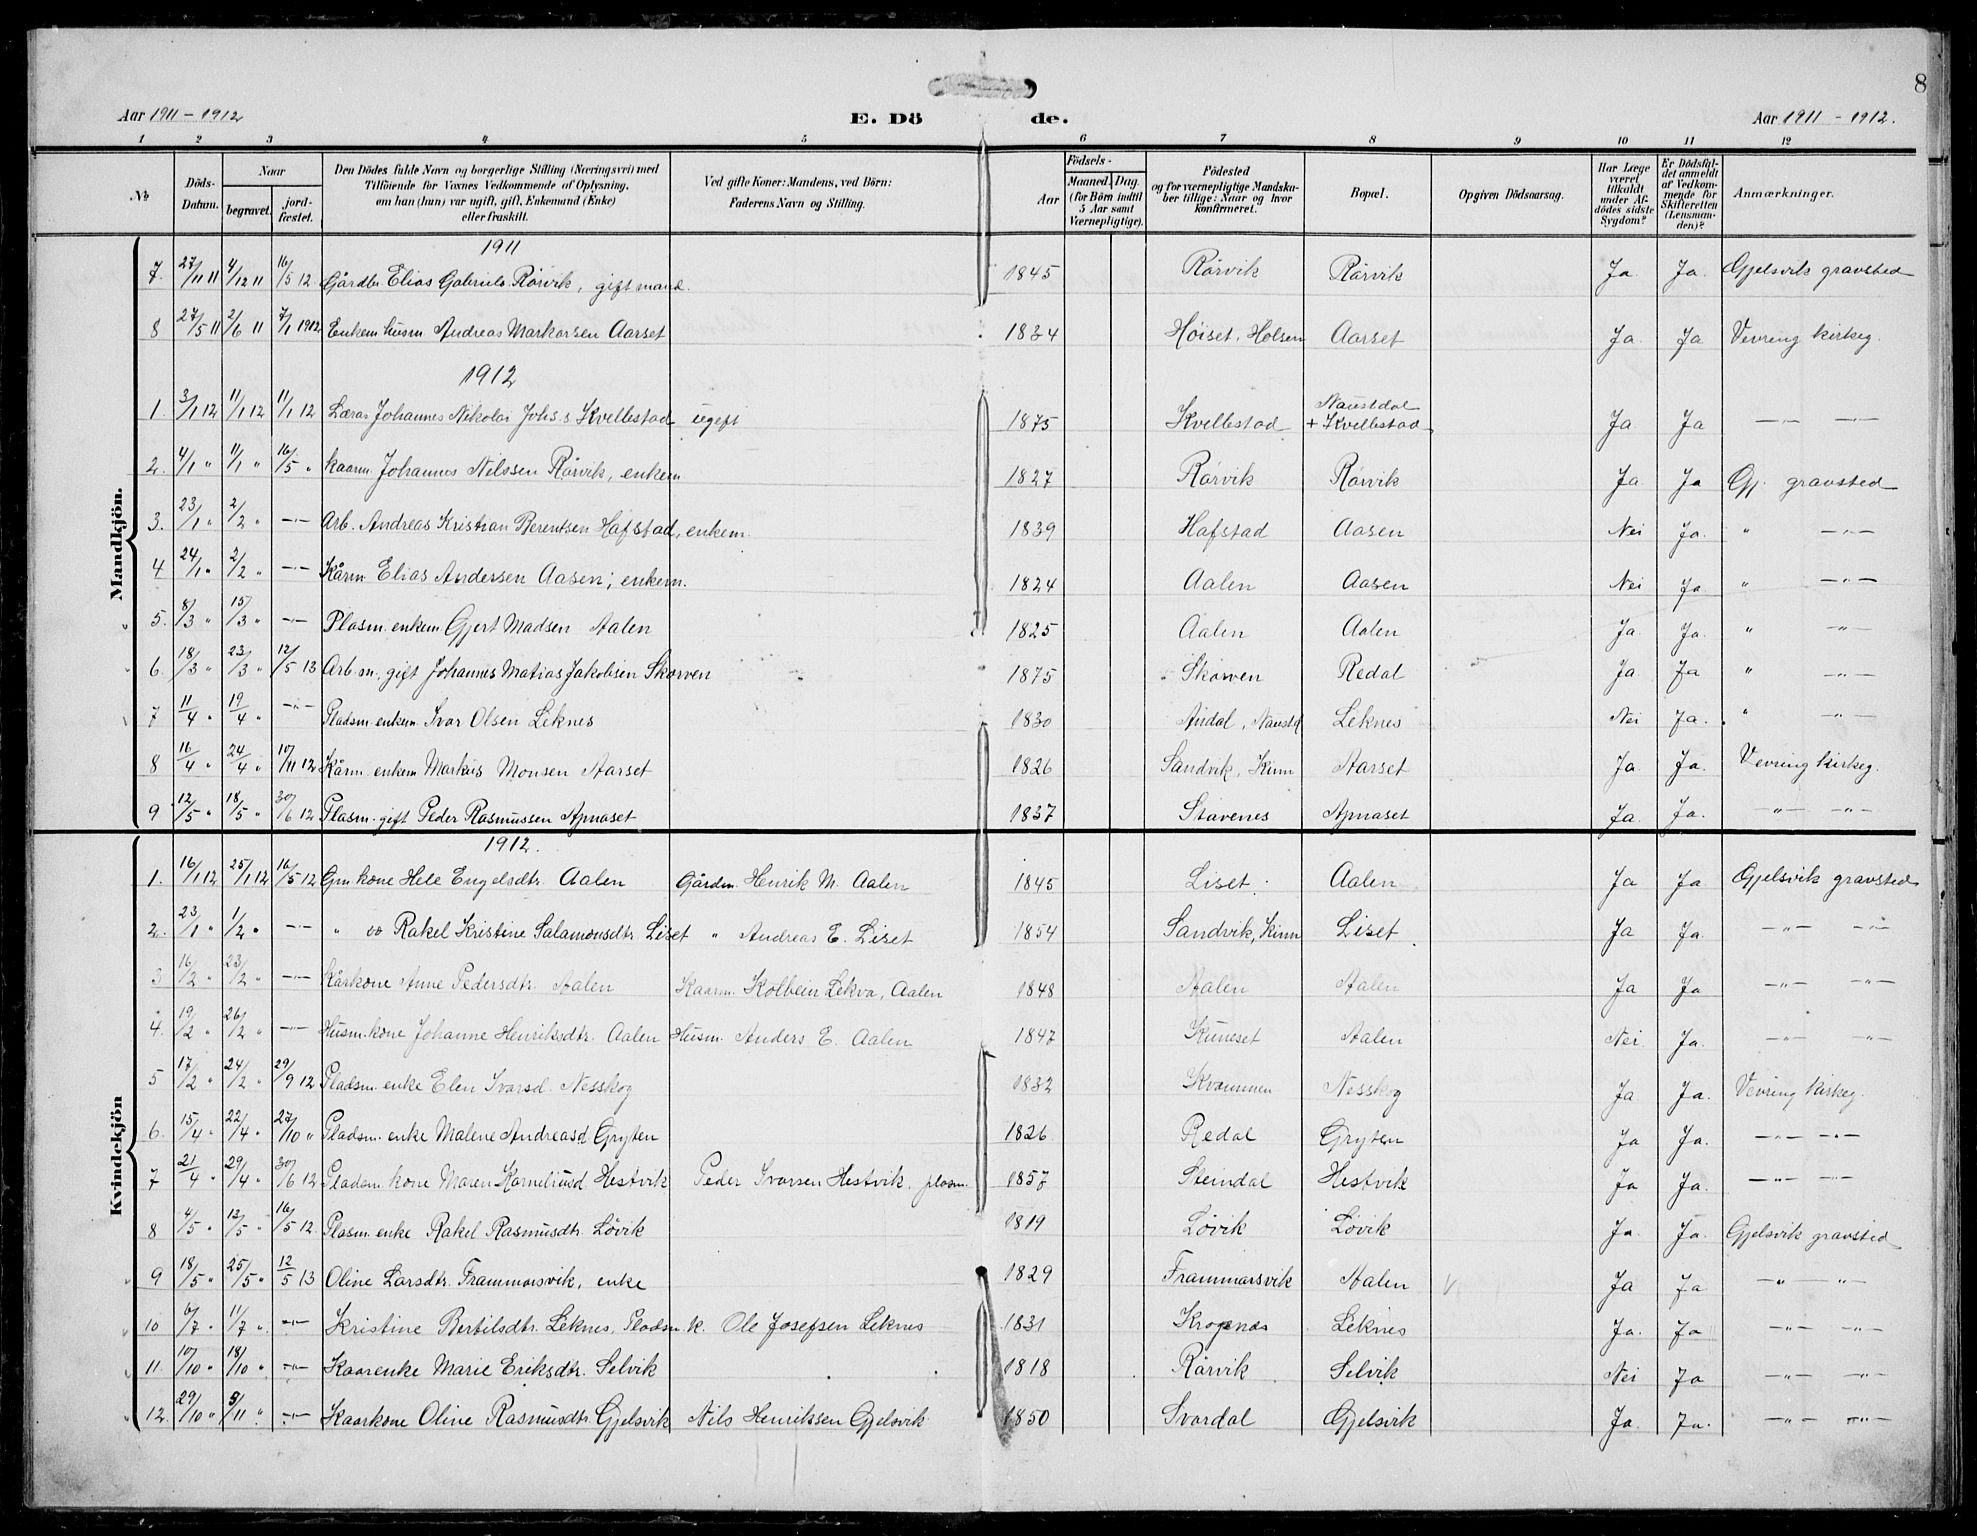 8
Aar 1911 - 1912 E. Dö de. Aar 1911 - 1912.
1 2 3 4 5 6 7 8 9 10 11 12
No Döds-Datum. Naar begravet. jordfæstet. Den Dödes fulde Navn og borgerlige Stilling (Næringsvei) med Tilföiende for Voxnes Vedkommende af Oplysning, om han (hun) var ugift, gift, Enkemand (Enke) eller fraskilt. Ved gifte Koner: Mandens, ved Börn: Faderens Navn og Stilling. Födsels- Aar Maaned. Dag. (for Börn indtil 5 Aar samt Værnepligtige). Födested og for værnepligtige Mandskaber tillige: Naar og hvor konfirmeret. Bopæl. Opgiven Dödsaarsag. Har Læge været tilkaldt under Afdödes sidste Sygdom? Er Dödsfaldet anmeldt af Vedkommende for Skifteretten (Lensmanden)? Anmærkninger.
Mandkjön.
1911
7. 27/11 11 4/12 11 16/5 12 Gårdbr Elias Gabriels. Rörvik, gift mand. 1845 Rörvik Rörvik Ja Ja. Gjelsvik gravsted
8 27/5 11 2/6 11 7/1 1912 Enkem husm Andreas Markusen Aarset 1834 Höiset, Holsen Aarset Ja Ja Vevring kirkeg.
1912
1. 3/1 12 11/1 12 11/1 12 Læras Johannes Nikolai Johs.s Kvellestad ugift 1875 Kvellestad Naustdal + Kvellestad Ja Ja —"— —"—
2. 4/1 " 11/1 " 16/5 " kaarm. Johannes Nilssen Rörvik, enkem 1827 Rörvik Rörvik Ja Ja Gj. gravsted
3. 23/1 " 2/2 " —"— Arb. Andreas Kristian Berentsen Hafstad, enkem. 1839 Hafstad Aasen Nei Ja. " —"—
4 24/1 " 2/2 " —"— Kårm Elias Andersen Aasen, enkem. 1824 Aalen Aasen Nei Ja " —"—
5. 8/3 " 15/3 " —"— Plasm. enkem Gjert Madsen Aalen 1825 Aalen Aalen Ja. Ja. " —"—
6. 18/3 " 23/3 " 12/5 13 Arb.m, gift Johannes Matias Jakobsen Skorven 1875 Skorven Redal Ja Ja " —"—
7 11/4 " 19/4 " —"— Pladsm. enkem. Ivar Olsen Leknes 1830 Andal, Naustd Leknes Nei Ja. " —"—
8 16/4 " 24/4 " 10/11 12 Kårm. enkem Markus Monsen Aarset 1826 Sandvik, Kinn Aarset Ja Ja. Vevring kirkeg.
9 12/5 " 18/5 " 30/6 12 Plasm. gift Peder Rasmussen Apnaset 1837 Stavenes Apnaset Ja. Ja. —"— —"—
Kvindekjön
1912.
1. 16/1 12 25/1 12 16/5 12 Gm kone Hele Engelsdtr. Aalen Gårdm. Henrik M. Aalen 1845 Liset Aalen Ja Ja Gjelsvik gravsted
2. 23/1 " 1/2 " —"— " Rakel Kristine Salamonsdtr Liset " Andreas E. Liset 1854 Sandvik, Kinn Liset Ja Ja. —"— —"—
3 16/2 " 23/2 " —"— Kårkone Anne Pedersdtr. Aalen Kaarm. Kolbein Lekva, Aalen 1848 Aalen Aalen Ja Ja —"— —"—
4. 19/2 " 26/2 " —"— Husm. kone Johanne Henriksdtr. Aalen Husm. Anders E. Aalen 1847 Kuneset Aalen Nei Ja. —"— —"—
5 17/2 " 24/2 " 29/9 12 Pladsm. enke Elen Ivarsd. Nesskog 1832 Kvammen Nesskog Ja Ja. Vevring kirkeg.
6. 15/4 " 22/4 " 27/10 " Pladsm. enke Malene Andreasd Gryten 1826 Redal Gryten Ja Ja. —"— —"—
7 21/4 " 29/4 " 30/6 12 Pladsm. kone Maren Korneliusd Hestvik Peder Ivarsen Hestvik, plasm. 1857 Steindal Hestvik Ja Ja. —"— —"—
8 4/5 " 13/5 " 16/5 12. Plasm. enke Rakel Rasmusdtr. Lövik 1819 Lövik Lövik Ja. Ja. Gjelsvik gravsted
9 18/5 " 25/5 " 12/5 13 Oline Larsdtr. Frammarsvik, enke 1829 Frammarsvik Aalen Ja Ja " —"—
10 6/7 " 11/7 " —"— Kristine Bertilsdtr. Leknes, Pladsm. k. Ole Josefsen Leknes 1831 Kropnes Leknes Ja. Ja —"— —"—
11. 10/10 " 18/10 " —"— Kaarenke Marie Eriksdtr. Selvik 1818 Rörvik Selvik Nei Ja —"— —"—
12. 29/10 " 5/11 " —"— Kaarkone Oline Rasmusdtr. Gjelsvik Nils Henrikssen Gjelsvik 1850 Svardal Gjelsvik Ja. Ja. —"— —"—